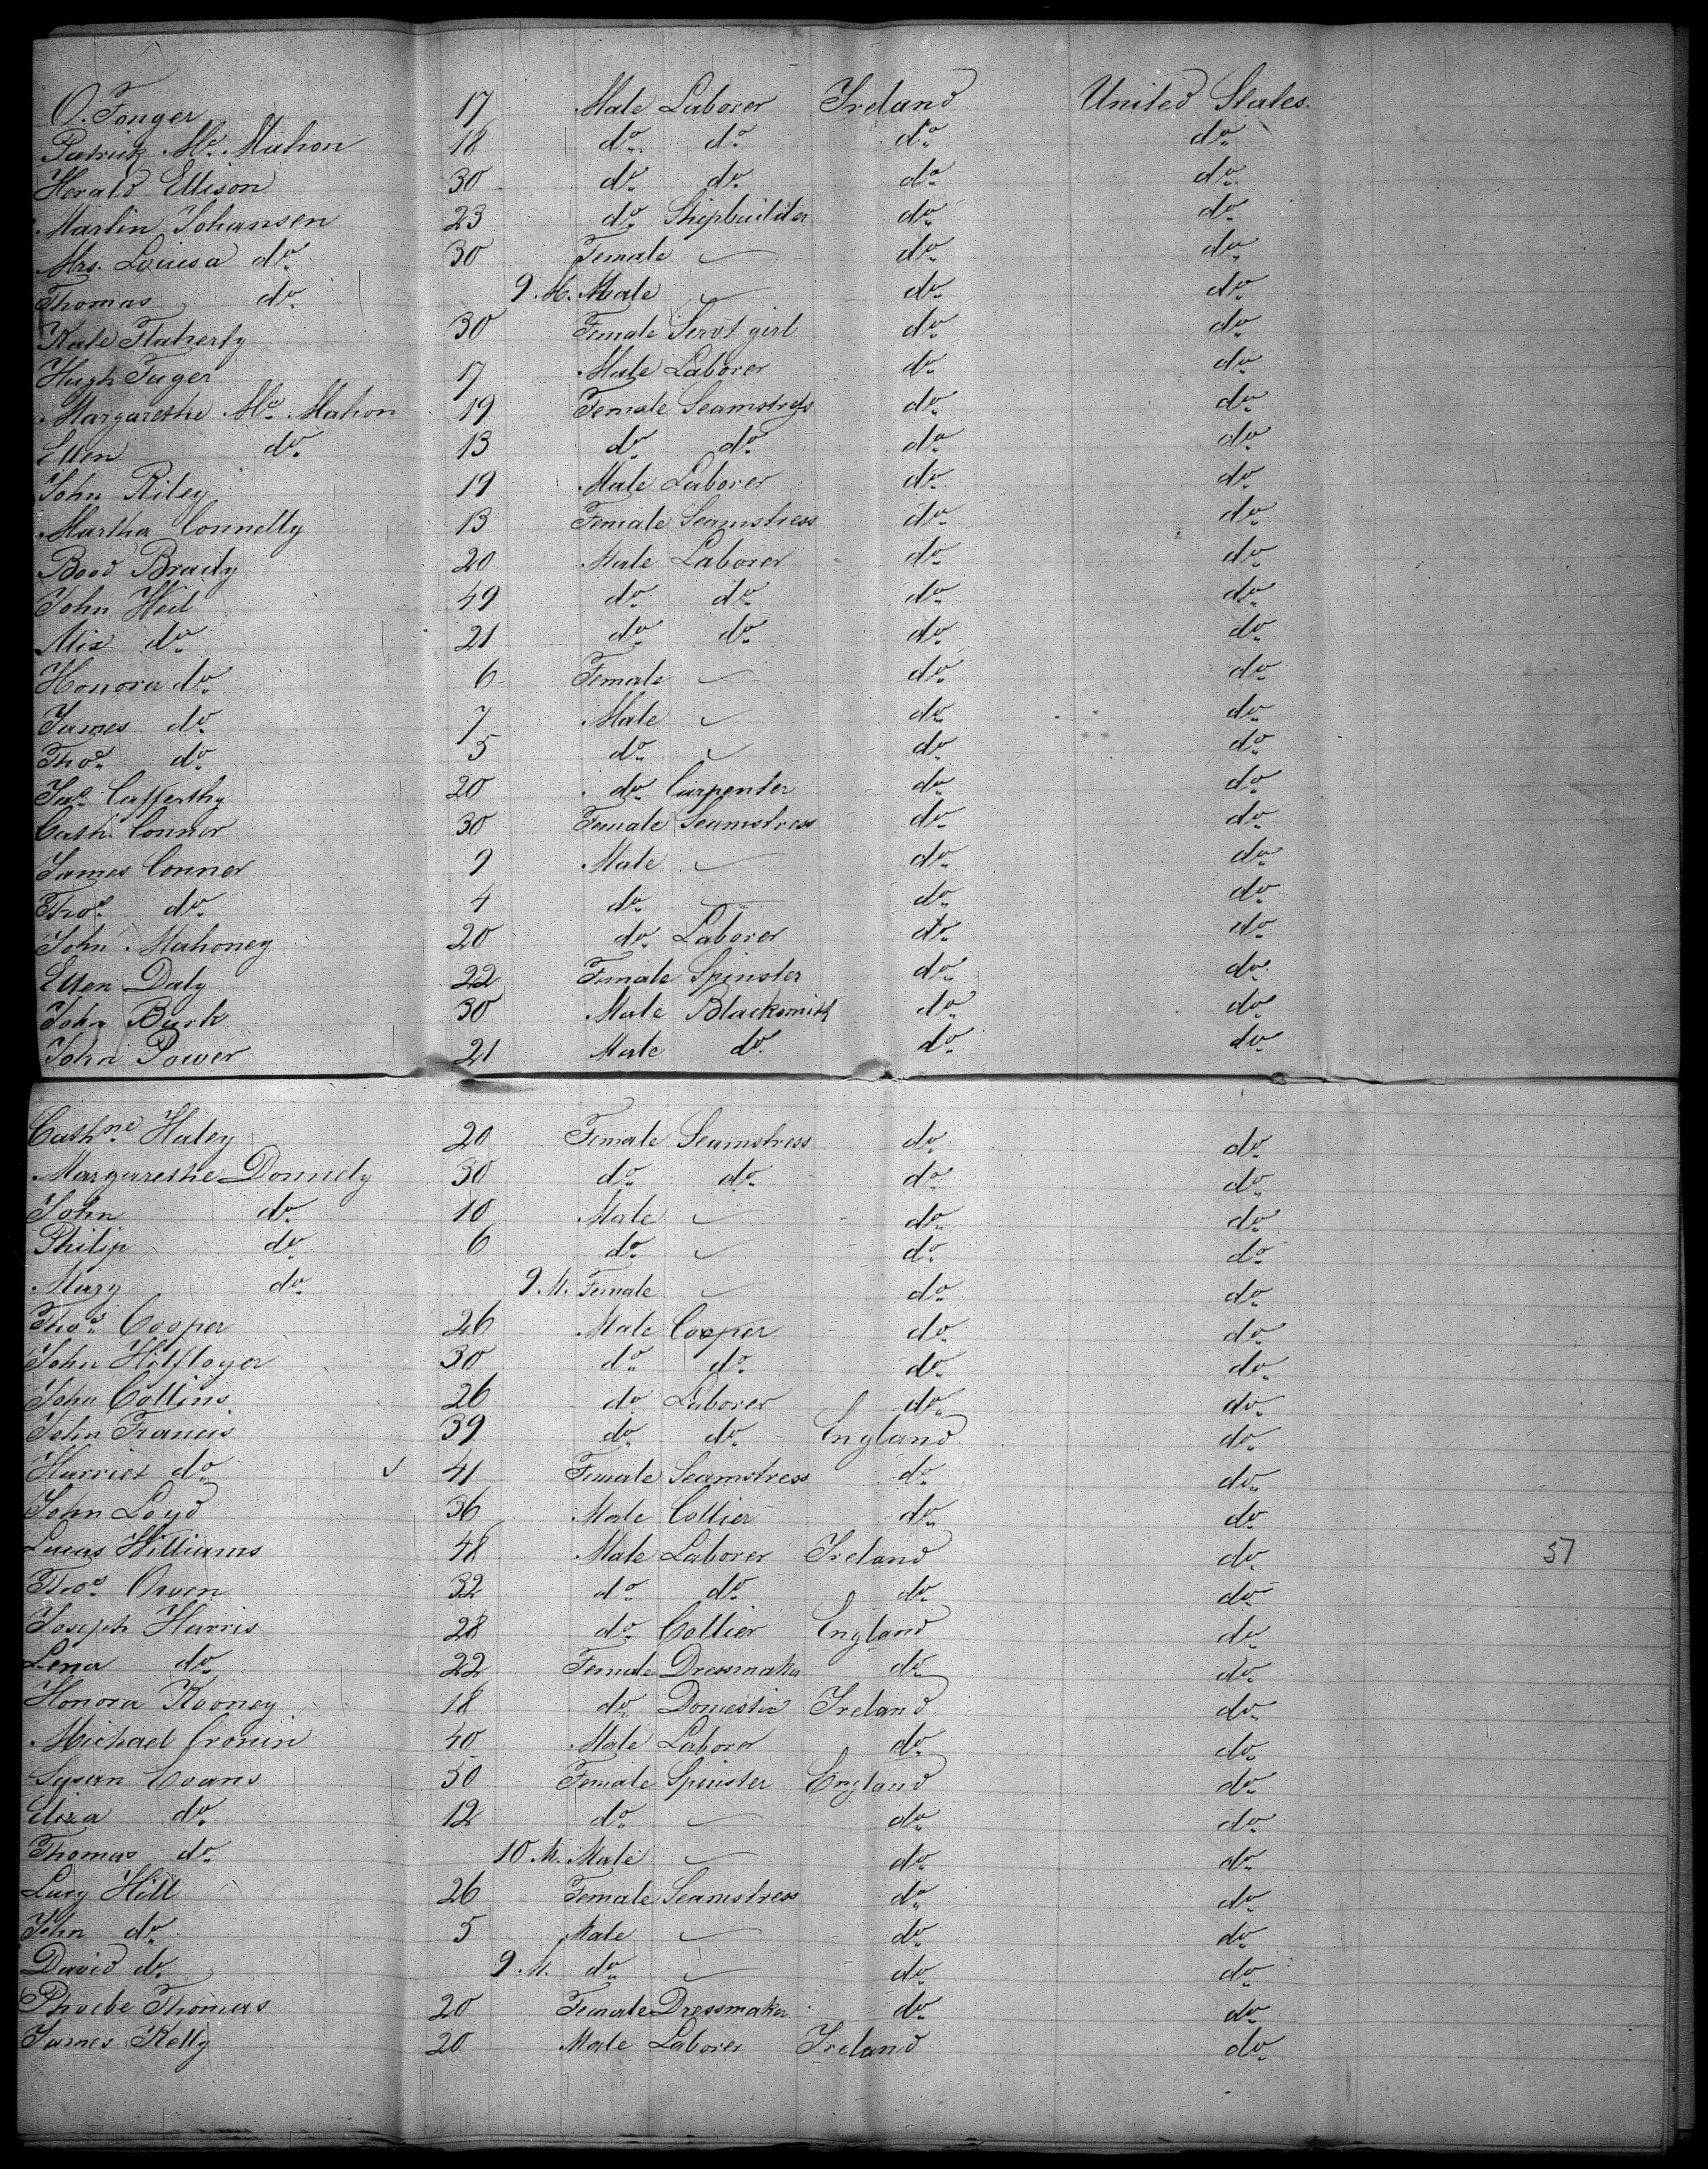 O. Fonger 17 Male Laborer Ireland United States.
Patrick Mc. Mahon 18 do do do do
Herald Ellison 30 do do do do
Martin Johansen 23 do Shipbuilder do do
Mrs. Louisa do 30 Female do do
Thomas do 9. M. Male do do
Kate Flaherty 30 Female Servt girl do do
Hugh Fuger 17 Male Laborer do do
Margarethe Mc. Mahon 19 Female Seamstress do do
Ellen do 13 do do do do
John Riley 19 Male Laborer do do
Martha Connelly 13 Female Seamstress do do
Brady 20 Male Laborer do do
John 49 do do do do
do 21 do do do do
Honora do 6 Female do do
James do 7 Male do do
Thos do 5 do do do
Cafferthy 20 do Carpenter do do
Cath. Connor 30 Female Seamstress do do
James Conner 9 Male do do
Thos do 4 do do do
John Mahoney 20 do Laborer do do
Ellen Daly 22 Female Spinster do do
John Burk 30 Male Blacksmith do do
John Power 21 Male do do do
Cathne Haley 20 Female Seamstress do do
Margarethe Donnely 30 do do do do
John do 10 Male do do
Philip do 6 do do do
Mary do 9. M. Female do do
Thos Cooper 26 Male Cooper do do
John 30 do do do do
John Collins 26 do Laborer do do
John Francis 39 do do England do
Harriet do ✓ 41 Female Seamstress do do
John Loyd 36 Male Collier do do
Williams 48 Male Laborer Ireland do 57
Thos Owen 32 do do do do
Joseph Harris 28 do Collier England do
Lena do 22 Female Dressmaker do do
Honora Rooney 18 do Domestic Ireland do
Michael Cronin 40 Male Laborer do do
Susan Evans 30 Female Spinster England do
Eliza do 12 do do do
Thomas do 10. M. Male do do
Lucy Hill 26 Female Seamstress do do
John do 5 Male do do
David do 9. M. do do do
Phoebe Thomas 20 Female Dressmaker do do
James Kelly 20 Male Laborer Ireland do